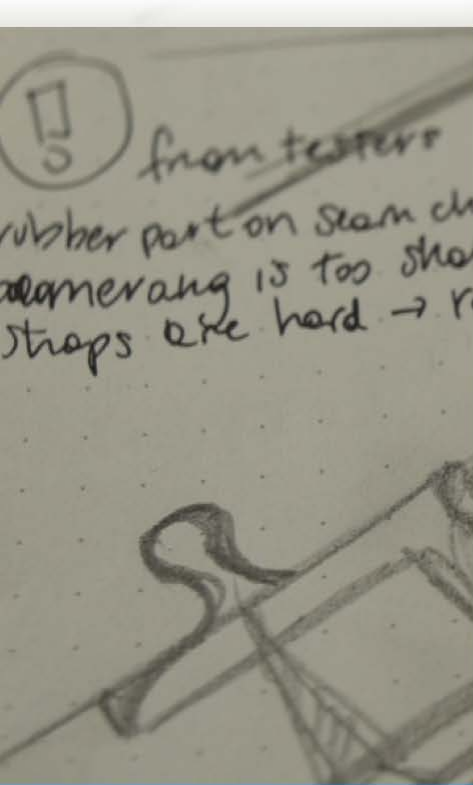 ! from testers
rubber part on seam ch
boomerang is too sho
straps are hard → r